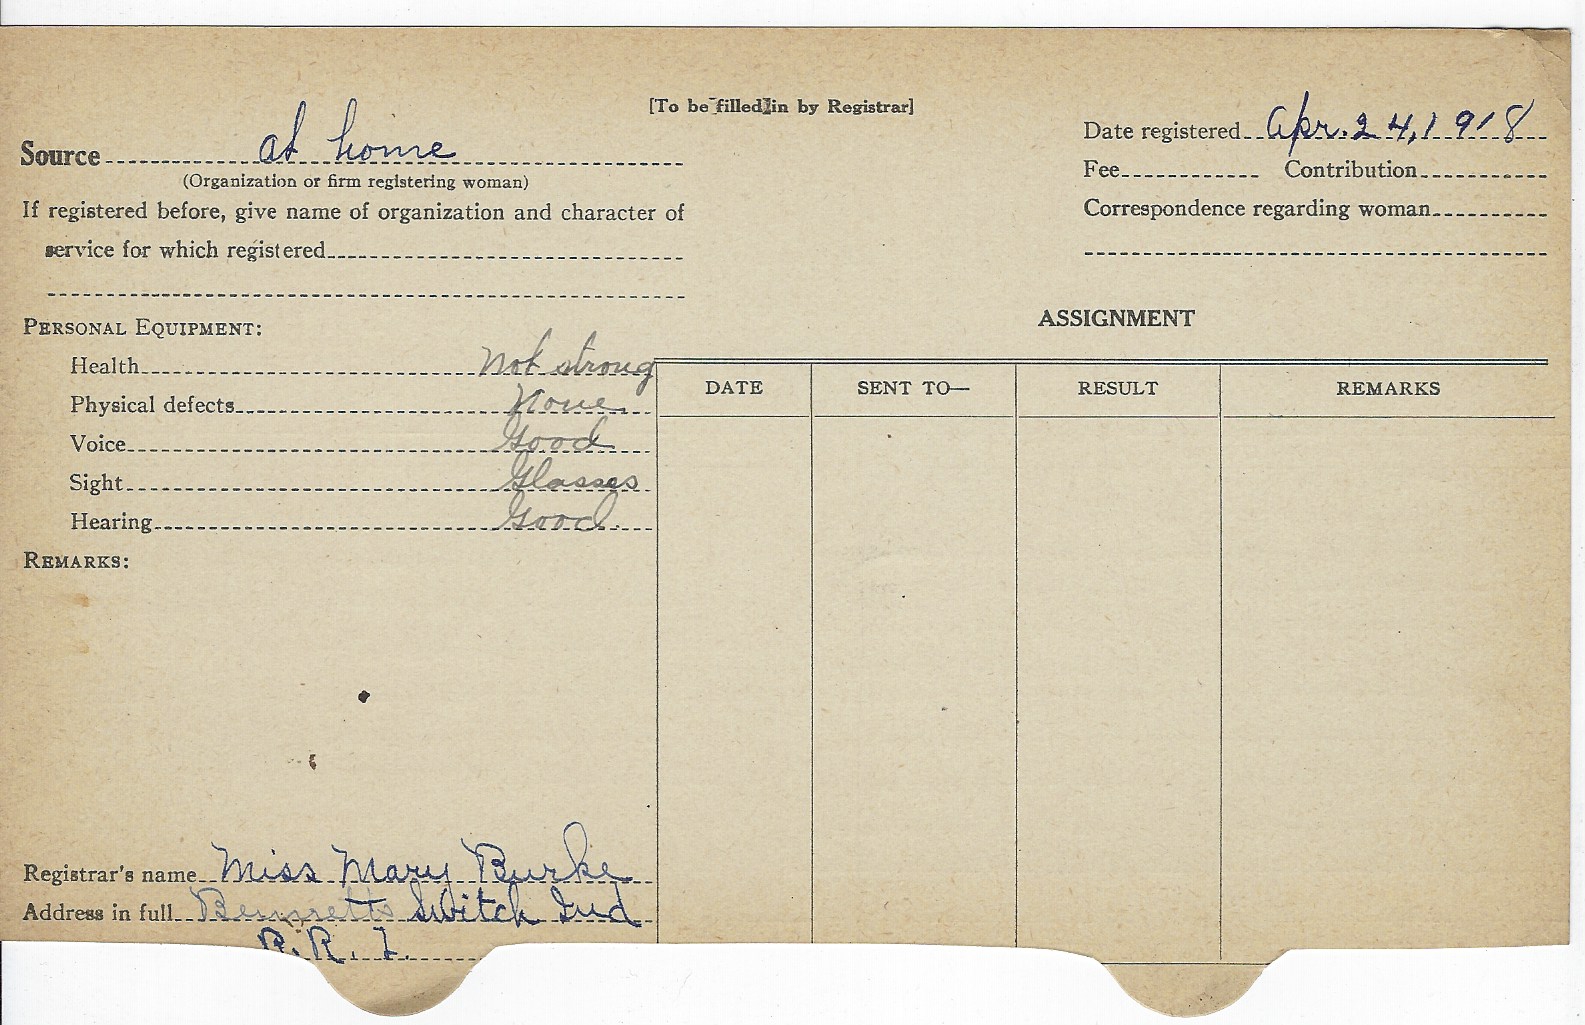 [To be filled in by Registrar]
Source at home
(Organization or firm registering woman)
If registered before, give name of organization and character of
service for which registered
Date registered Apr. 24, 1918
Fee Contribution
Correspondence regarding woman
PERSONAL EQUIPMENT:
Health Not strong
Physical defects None
Voice Good
Sight Glasses
Hearing Good
REMARKS:
ASSIGNMENT
DATE SENT TO— RESULT REMARKS
Registrar's name Miss Mary Burke
Address in full Bennetts Switch Ind
R. R. 1.